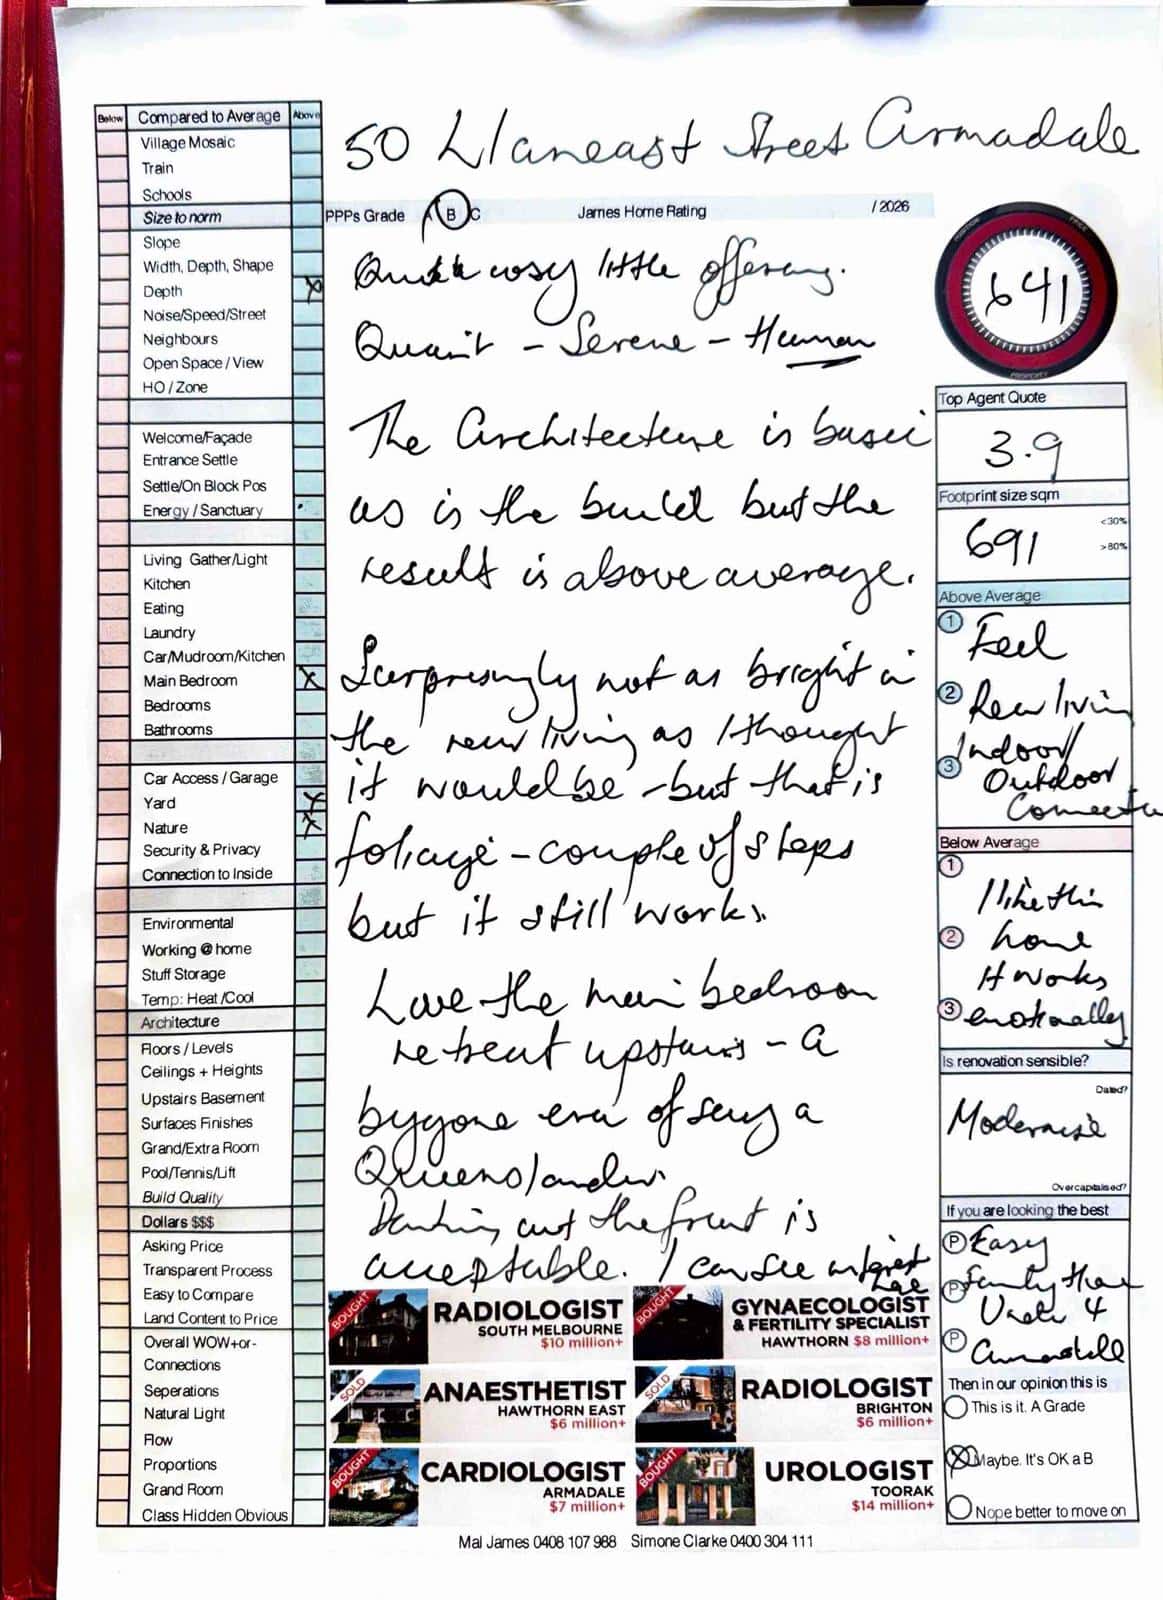 50 Llaneast Street Armadale
Below Compared to Average Above
Village Mosaic
Train
Schools
Size to norm
Slope
Width, Depth, Shape
Depth X
Noise/Speed/Street
Neighbours
Open Space / View
HO / Zone
Welcome/Façade
Entrance Settle
Settle/On Block Pos
Energy / Sanctuary
Living Gather/Light
Kitchen
Eating
Laundry
Car/Mudroom/Kitchen
Main Bedroom X
Bedrooms
Bathrooms
Car Access / Garage
Yard X
Nature X
Security & Privacy
Connection to Inside
Environmental
Working @ home
Stuff Storage
Temp: Heat /Cool
Architecture
Floors / Levels
Ceilings + Heights
Upstairs Basement
Surfaces Finishes
Grand/Extra Room
Pool/Tennis/Lift
Build Quality
Dollars $$$
Asking Price
Transparent Process
Easy to Compare
Land Content to Price
Overall WOW+or-
Connections
Seperations
Natural Light
Flow
Proportions
Grand Room
Class Hidden Obvious
PPPs Grade A B C James Home Rating / 2026
cosy little offering.
Quaint - Serene - Human
The Architecture is basic
as is the build but the
result is above average.
Surprisingly not as bright in
the rear living as I thought
it would be - but that is
foliage - couple of steps
but it still works.
Love the main bedroom
retreat upstairs - a
bygone era of say a
Queenslander.
out the front is
acceptable. I can see interest
BOUGHT RADIOLOGIST
SOUTH MELBOURNE
$10 million+
BOUGHT GYNAECOLOGIST
& FERTILITY SPECIALIST
HAWTHORN $8 million+
SOLD ANAESTHETIST
HAWTHORN EAST
$6 million+
SOLD RADIOLOGIST
BRIGHTON
$6 million+
BOUGHT CARDIOLOGIST
ARMADALE
$7 million+
BOUGHT UROLOGIST
TOORAK
$14 million+
POSITION PRICE
641
PROPERTY
Top Agent Quote
3.9
Footprint size sqm
<30%
691
>80%
Above Average
1 Feel
2 Rear living
3 Indoor/
Outdoor
Below Average
1
I like this
2 home
It works
3 emotionally
Is renovation sensible?
Dated?
Modernise
Overcapitalised?
If you are looking the best
P Easy
P Family
Under 4
P Armadale
Then in our opinion this is
This is it. A Grade
X Maybe. It's OK a B
Nope better to move on
Mal James 0408 107 988 Simone Clarke 0400 304 111